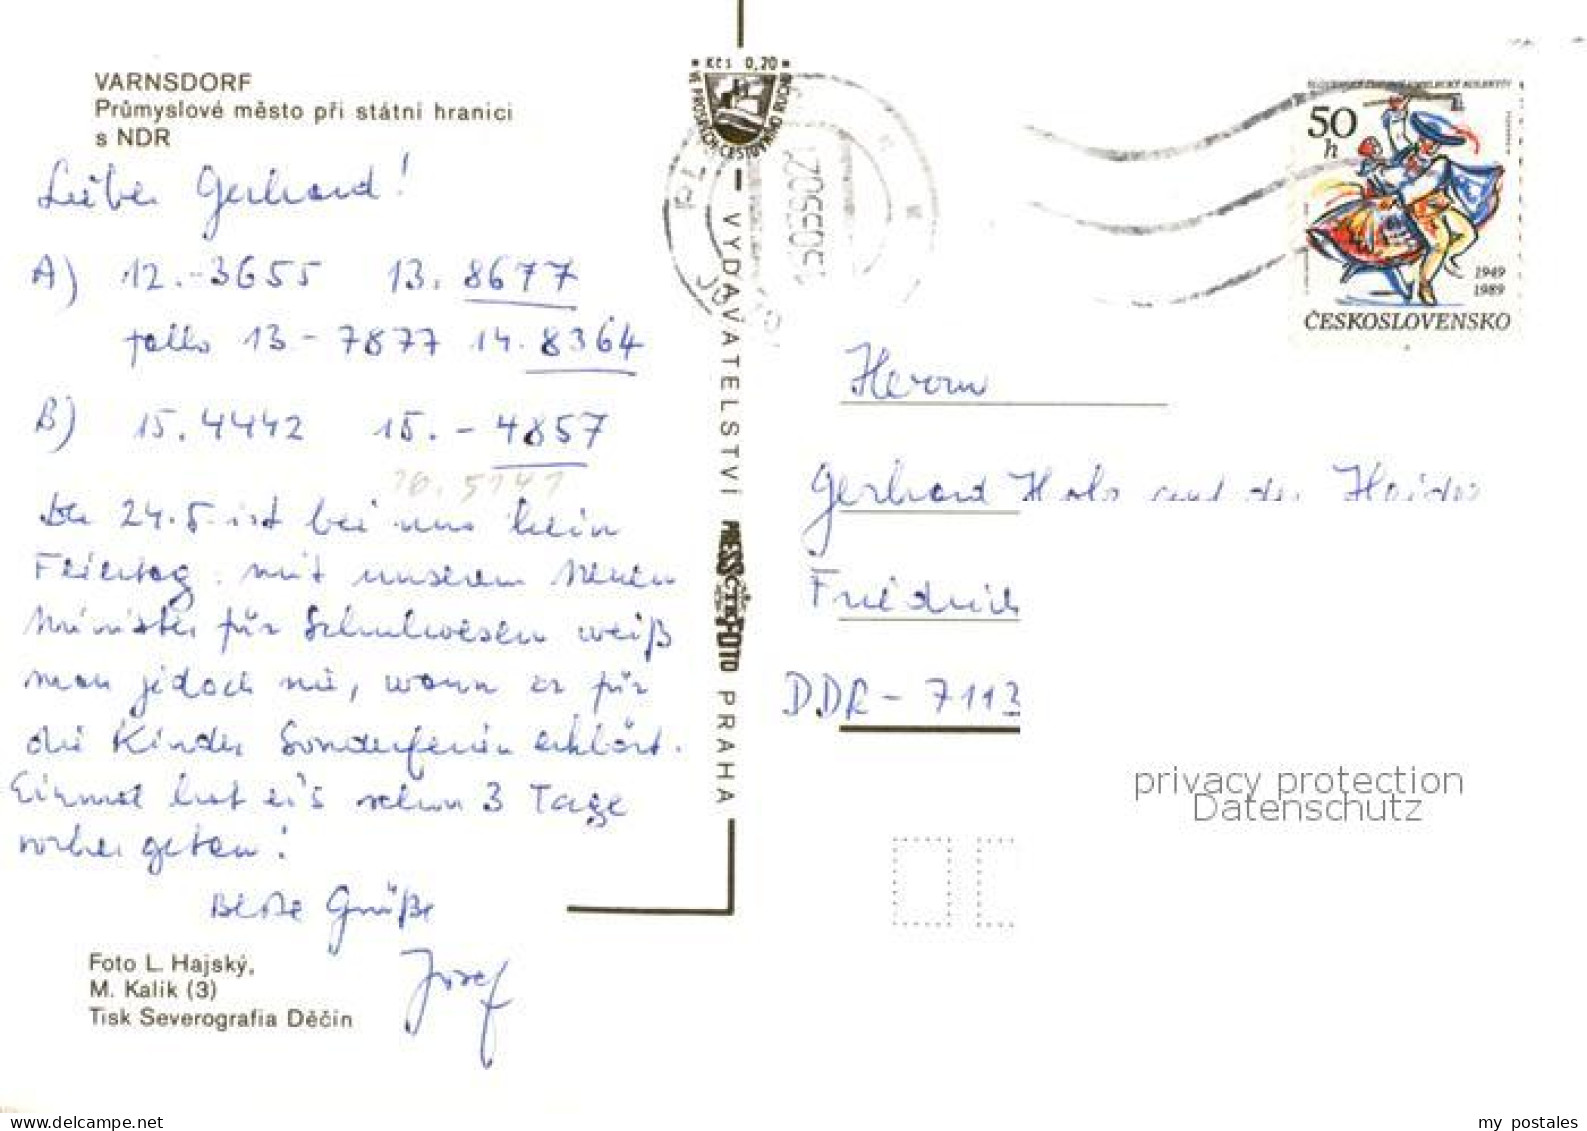 VARNSDORF
Průmyslové město při státní hranici
s NDR
Lieber Gerhard!
A) 12.-3655 13. 8677
falls 13-7877 14. 8364
B) 15. 4442 15.- 4857
16. 5141
Der 24.5. ist bei uns kein
Feiertag. mit unserem neuen
Minister für Schulwesen weiß
man jedoch nie, wann er für
die Kinder Sonderferien erklärt.
Einmal hat er's schon 3 Tage
vorher getan!
Beste Grüße
Josef
Foto L. Hajský,
M. Kalik (3)
Tisk Severografia Děčín
Kčs 0,20
VYDAVATELSTVÍ PRESSFOTO PRAHA
ČTK
50
h
1949
1989
ČESKOSLOVENSKO
Herrn
Gerhard
Friedrich
DDR - 7113
privacy protection
Datenschutz
my postales
delcampe.net